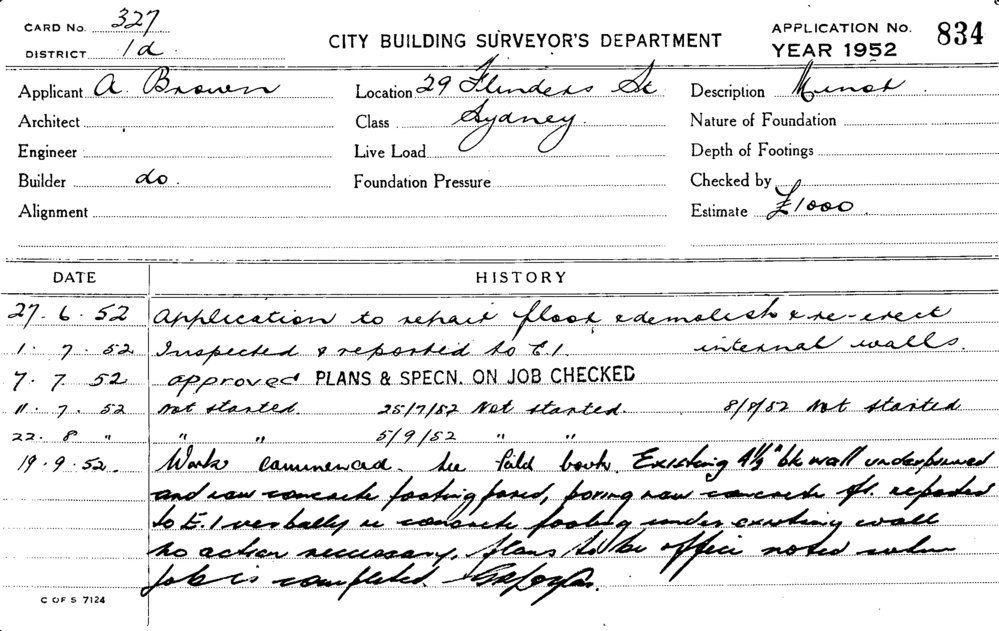 CARD No. 327
DISTRICT 1d.
CITY BUILDING SURVEYOR'S DEPARTMENT
APPLICATION No. 834
YEAR 1952
Applicant A. Brown
Location 29 Flinders St
Description Minor
Architect
Class Sydney.
Nature of Foundation
Engineer
Live Load
Depth of Footings
Builder do.
Foundation Pressure
Checked by
Alignment
Estimate £1000
DATE HISTORY
27. 6. 52 Application to repair floor & demolish & re-erect
internal walls.
1. 7. 52 Inspected & reported to E.1.
7. 7. 52 approved PLANS & SPECN. ON JOB CHECKED
11. 7. 52 Not started. 25/7/52 Not started. 8/8/52 Not started
22. 8 " " " 5/9/52 " "
19. 9. 52. Work commenced. See field book. Existing 4½" bk wall underpinned
and new concrete footing pored, poring new concrete reported
to E.1 verbally re concrete footing under existing wall
no action necessary. plans to be office noted when
job is completed.
C OF S 7124